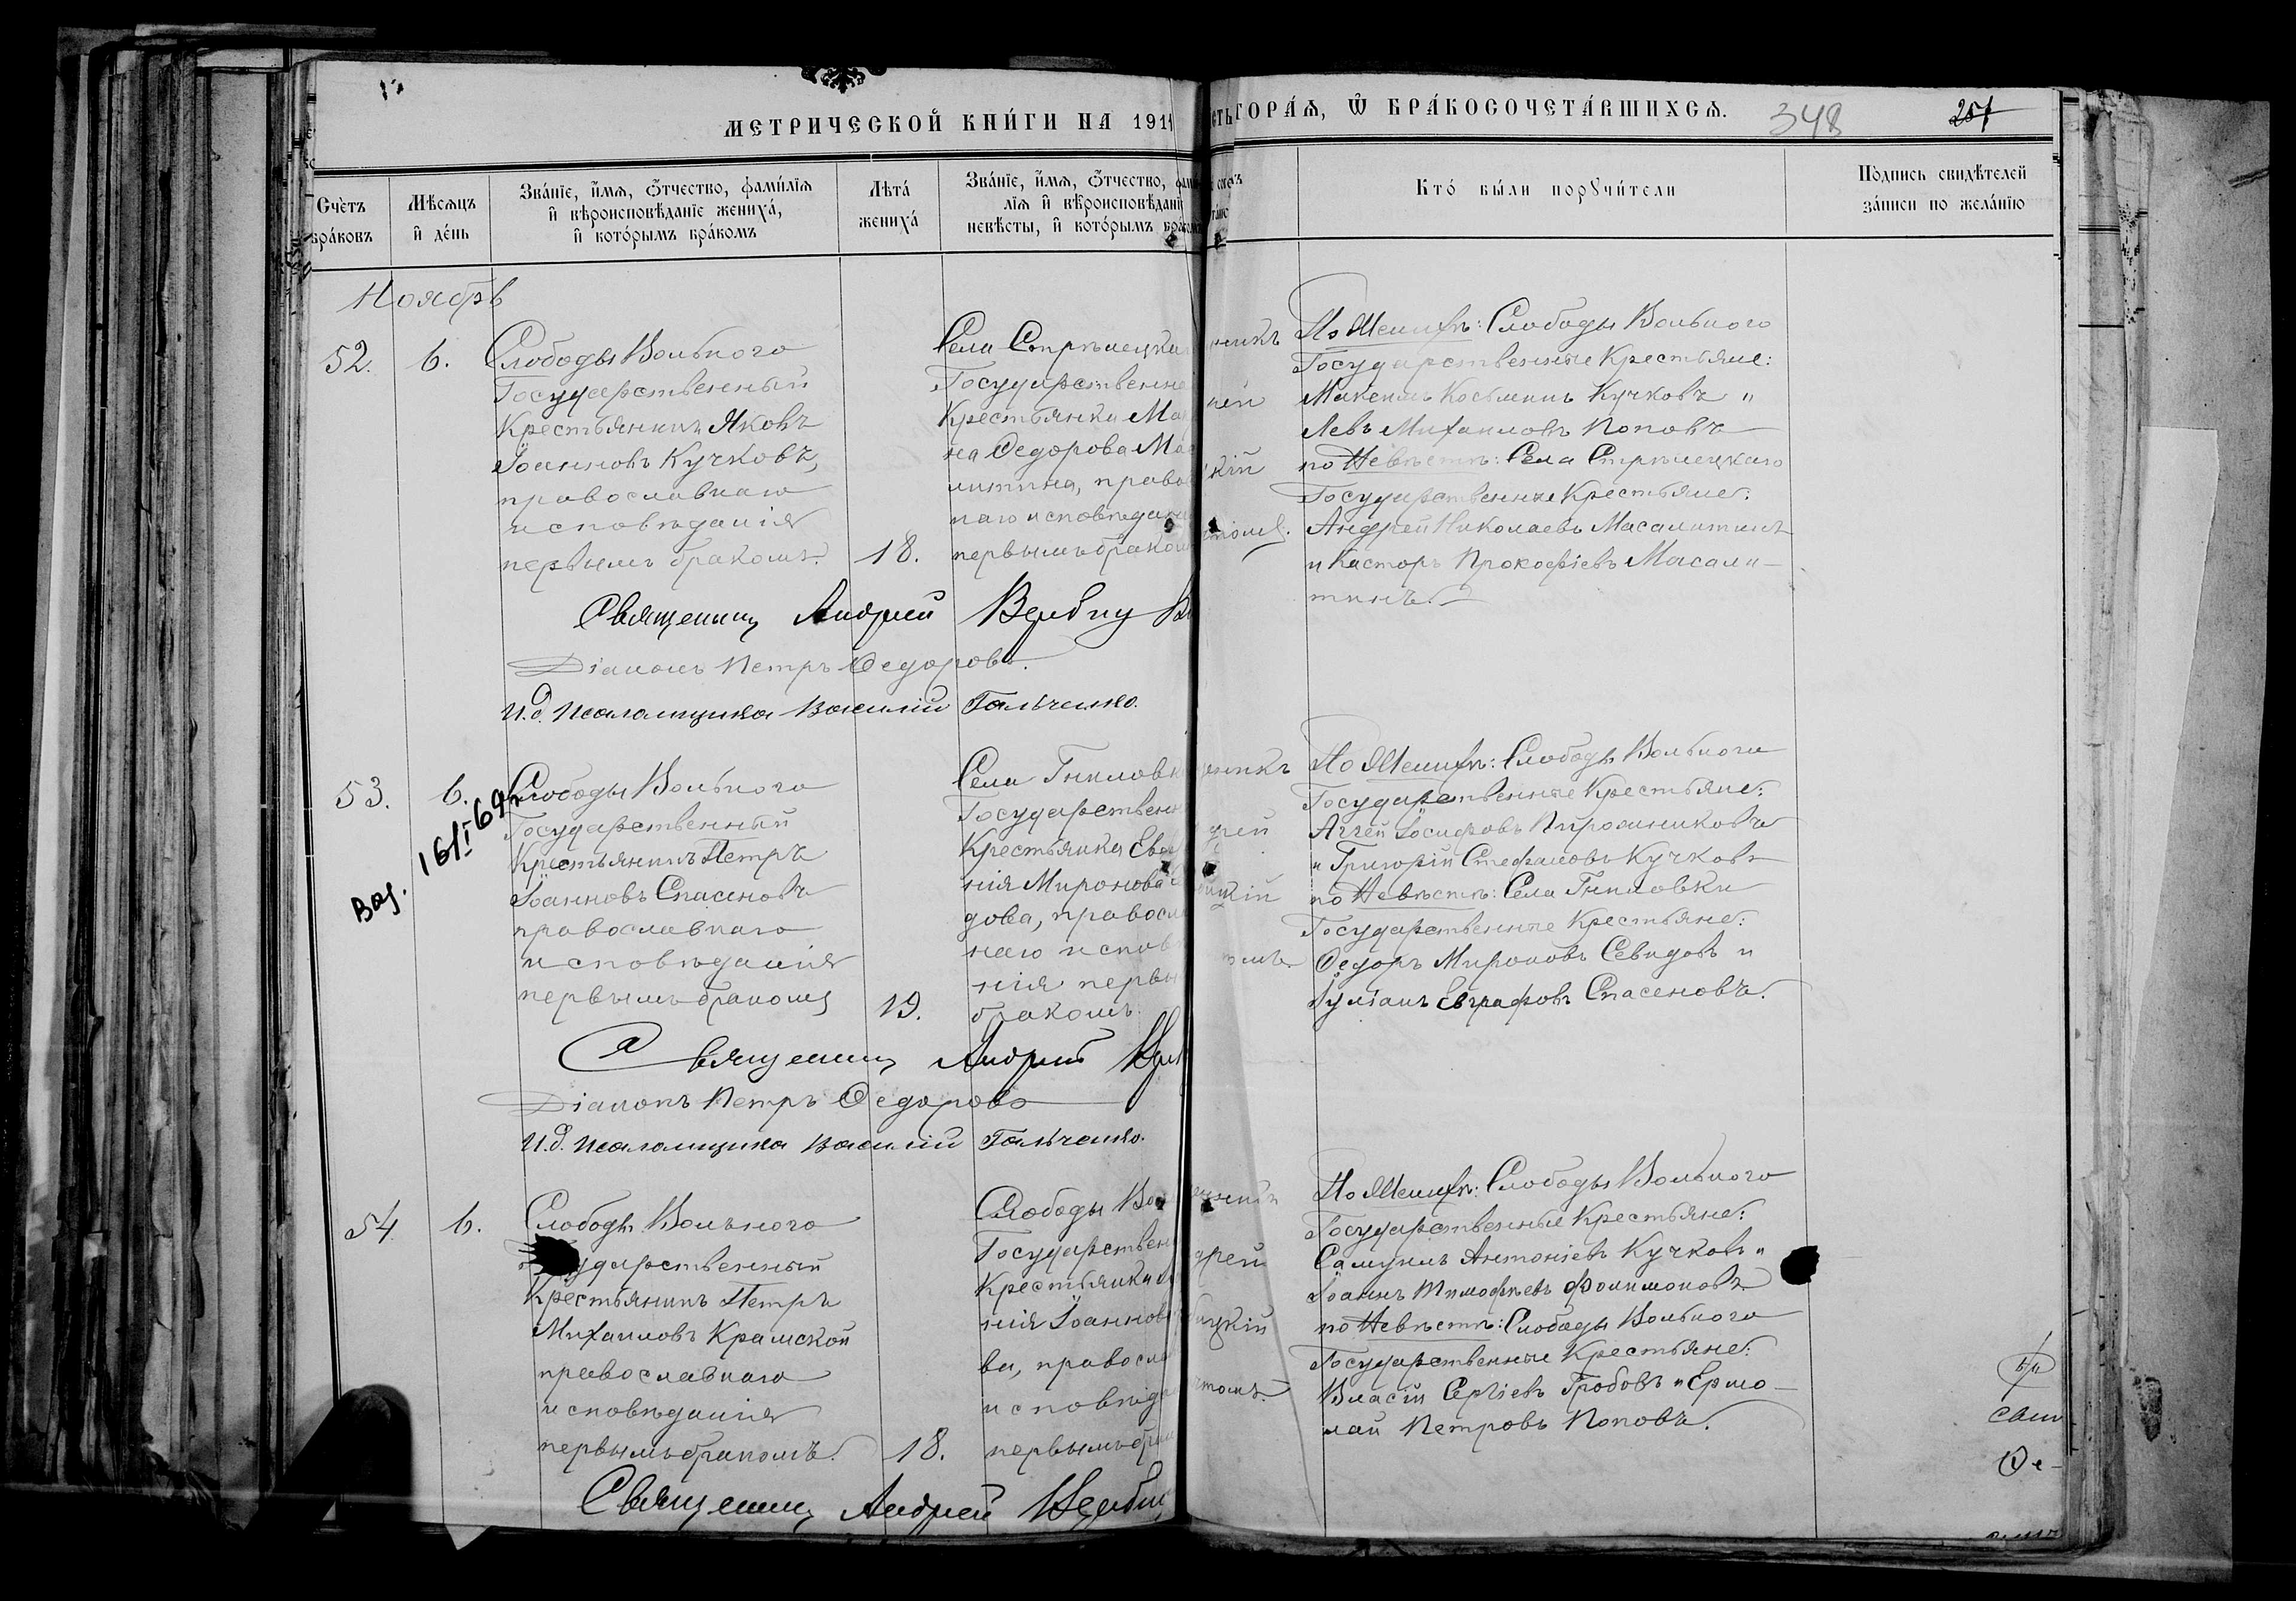 МЕТРИЧЕСКОЙ КНИГИ НА 191
ГОРАЯ, Ѿ БРАКОСОЧЕТАВШИХСЯ.
348
251
Счетъ браковъ
Мѣсяцъ и день
Званіе, имя, отчество, фамилія
и вѣроисповѣданіе жениха,
и которымъ бракомъ
Лѣта
жениха
Званіе, имя, отчество,
лія и вѣроисповѣдані
невѣсты, и которымъ
Кто были поручители
Подпись свидѣтелей
записи по желанію
Ноябрь
52.
6.
Слободы Вольного
Государственный
Крестьянинъ Яковъ
Іоанновъ Кучковъ,
православнаго
исповѣданія
первымъ бракомъ.
18.
Села Стрѣлецка
Государственна
Крестьянка Ма
на Ѳедорова Мас
литина, право
наго исповѣдан
первымъ бракомъ
По Женихѣ: Слободы Вольного
Государственные Крестьяне:
Максимъ Косьминъ Кучковъ и
Левъ Михаиловъ Поповъ
по Невѣстѣ: Села Стрѣлецкаго
Государственные Крестьяне:
Андрей Николаевъ Масалитинъ
и Касторъ Прокофіевъ Масали-
тинъ.
Священникъ Андрей
Діаконъ Петръ Ѳедоровъ.
И.д. Псаломщика Василій Гальченко.
53.
6.
16/I 69
Слободы Вольного
Государственный
Крестьянинъ Петръ
Іоанновъ Спасеновъ
православнаго
исповѣданія
первымъ бракомъ
19.
Села Гниловк
Государственн
Крестьянка Евг
нія Миронова
дова, правосл
наго исповѣ
нія первы
бракомъ.
По Женихѣ: Слободы Вольного
Государственные Крестьяне:
Аггей Іосифовъ Пирожниковъ
и Григорій Стефановъ Кучковъ
по Невѣстѣ: Села Гниловки
Государственные Крестьяне:
Ѳедоръ Мироновъ Севидовъ и
Іуліанъ Евграфовъ Спасеновъ.
Священникъ Андрей
Діаконъ Петръ Ѳедоровъ
И.д. Псаломщика Василій Гальченко.
54.
6.
Слободы Вольного
ударственный
Крестьянинъ Петръ
Михаиловъ Крамской
православнаго
исповѣданія
первымъ бракомъ.
18.
Слободы Во
Государствен
Крестьянка
нія Іоаннов
ва, правосла
исповѣда
первымъ бра
По Женихѣ: Слободы Вольного
Государственные Крестьяне:
Самуилъ Антоніевъ Кучковъ и
Іоаннъ Тимофѣевъ Филимоновъ
по Невѣстѣ: Слободы Вольного
Государственные Крестьяне:
Власій Сергіевъ Гробовъ и Ермо-
лай Петровъ Поповъ.
Священникъ Андрей